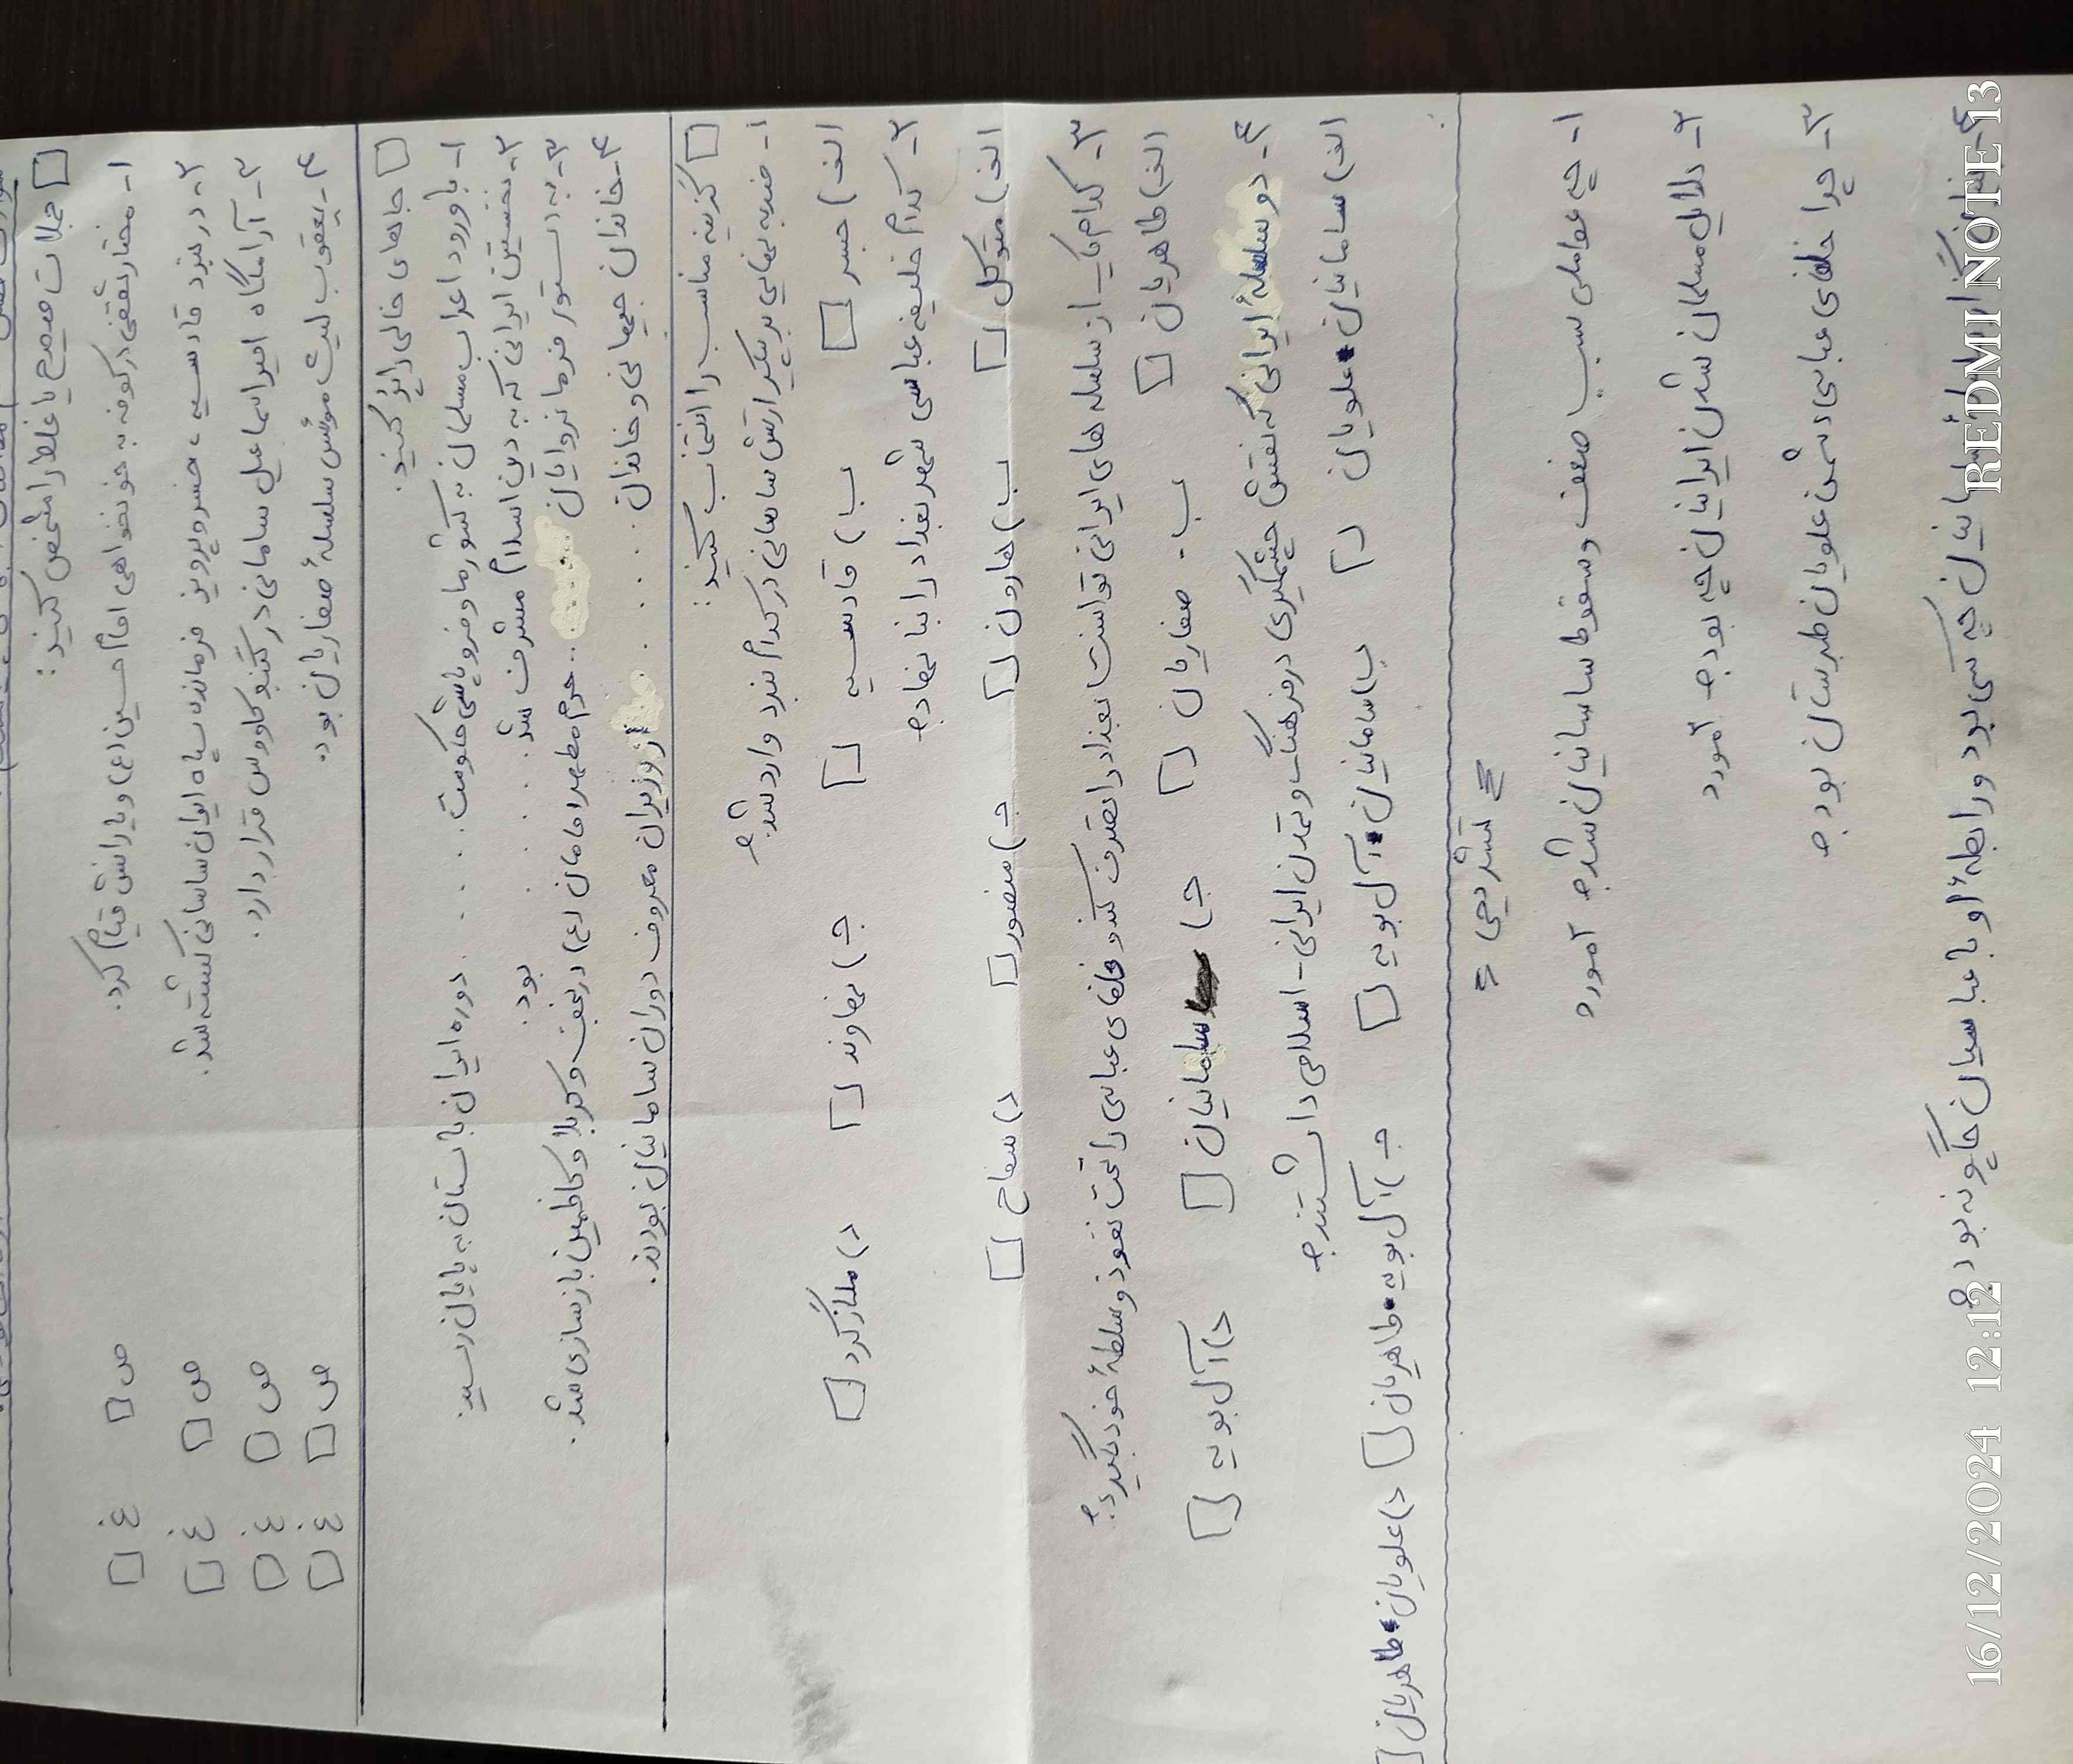 □ جملات صحیح یا غلط را مشخص کنید :
۱- مختار ثقفی در کوفه به خونخواهی امام حسین (ع) و یارانش قیام کرد. ص □ غ □
۲- در نبرد قادسیه، خسروپرویز فرمانده سپاه ایران ساسانی کشته شد. ص □ غ □
۳- آرامگاه امیر اسماعیل سامانی در گنبد کاووس قرار دارد. ص □ غ □
۴- یعقوب لیث مؤسس سلسلهٔ صفاریان بود. ص □ غ □
□ جاهای خالی را پر کنید.
۱- با ورود اعراب مسلمان به کشور ما و فروپاشی حکومت ..... دوره ایران باستان به پایان رسید.
۲- نخستین ایرانی که به دین اسلام مشرف شد ..... بود.
۳- به دستور فرمانروایان ..... حرم مطهر امامان (ع) در نجف و کربلا و کاظمین بازسازی شد.
۴- خاندان جیهانی و خاندان ..... از وزیران معروف دوران سامانیان بودند.
□ گزینه مناسب را انتخاب کنید :
۱- ضربه نهایی بر پیکر ارتش ساسانی در کدام نبرد وارد شد؟
الف) جسر □ ب) قادسیه □ ج) نهاوند □ د) ملازگرد □
۲- کدام خلیفه عباسی شهر بغداد را بنا نهاد؟
الف) متوکل □ ب) هارون □ ج) منصور □ د) سفاح □
۳- کدام یک از سلسله های ایرانی توانست بغداد را تصرف کند و خلفای عباسی را تحت نفوذ و سلطهٔ خود بگیرد؟
الف) طاهریان □ ب- صفاریان □ ج) سامانیان □ د) آل بویه □
۴- دو سلسلهٔ ایرانی که نقش چشمگیری در فرهنگ و تمدن ایرانی - اسلامی داشتند؟
الف) سامانیان • علویان □ ب) سامانیان • آل بویه □ ج) آل بویه • طاهریان □ د) علویان • طاهریان □
= تشریحی =
۱- چه عواملی سبب ضعف و سقوط ساسانیان شد؟ ۲مورد
۲- دلایل مسلمان شدن ایرانیان چه بود؟ ۲مورد
۳- چرا خلفای عباسی دشمن علویان طبرستان بود؟
۴- چه کسی بود و رابطهٔ او با عباسیان چگونه بود؟
REDMI NOTE 13
16/12/2024 12:12